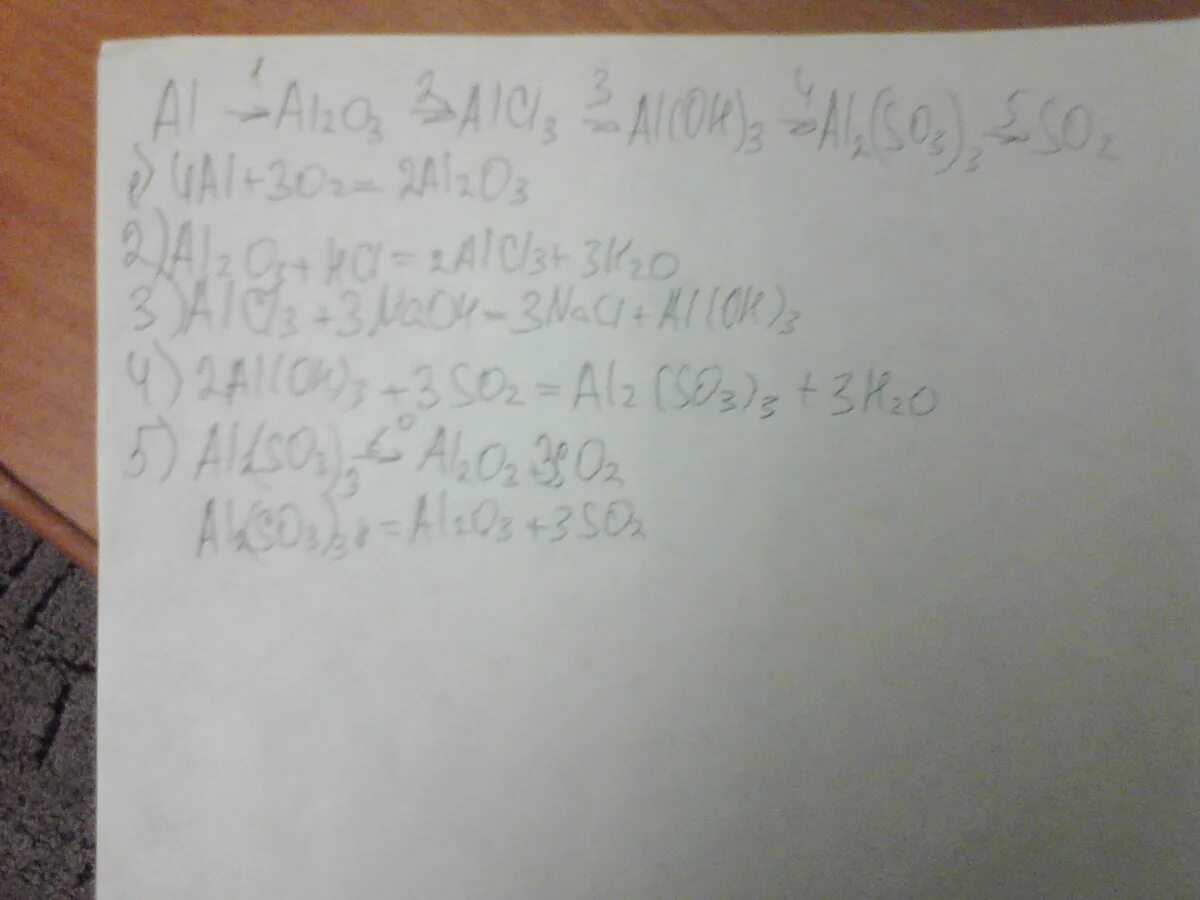 Al →1 Al₂O₃ →2 AlCl₃ →3 Al(OH)₃ →4 Al₂(SO₃)₃ →5 SO₂
1) 4Al+3O₂=2Al₂O₃
2) Al₂O₃+HCl=2AlCl₃+3H₂O
3) AlCl₃+3NaOH=3NaCl+Al(OH)₃
4) 2Al(OH)₃+3SO₂=Al₂(SO₃)₃+3H₂O
5) Al₂(SO₃)₃ Al₂O₃ 3SO₂
Al₂(SO₃)₃=Al₂O₃+3SO₂